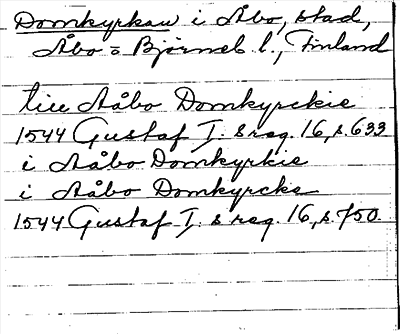 Domkyrkan i Åbo, stad,
Åbo = Björneb. l., Finland
till Aåbo Domkyrckie
1544 Gustaf I. s reg. 16, s. 633
i Aåbo Domkyrkie
i Aåbo Domkyrcke
1544 Gustaf I. s reg. 16, s. 750.